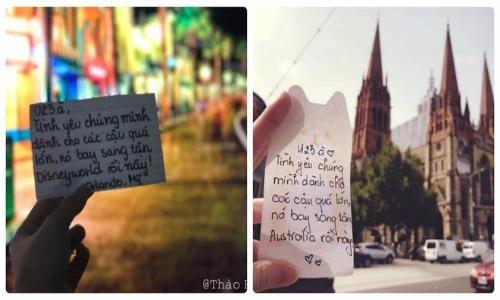 U23 à,
Tình yêu chúng mình
dành cho các cậu quá
lớn, nó bay sang tận
Disneyworld rồi này!
Orlando, Mỹ
@Thảo
U23 à ♡
Tình yêu chúng
mình dành cho
các cậu quá lớn,
nó bay sang tận
Australia rồi này